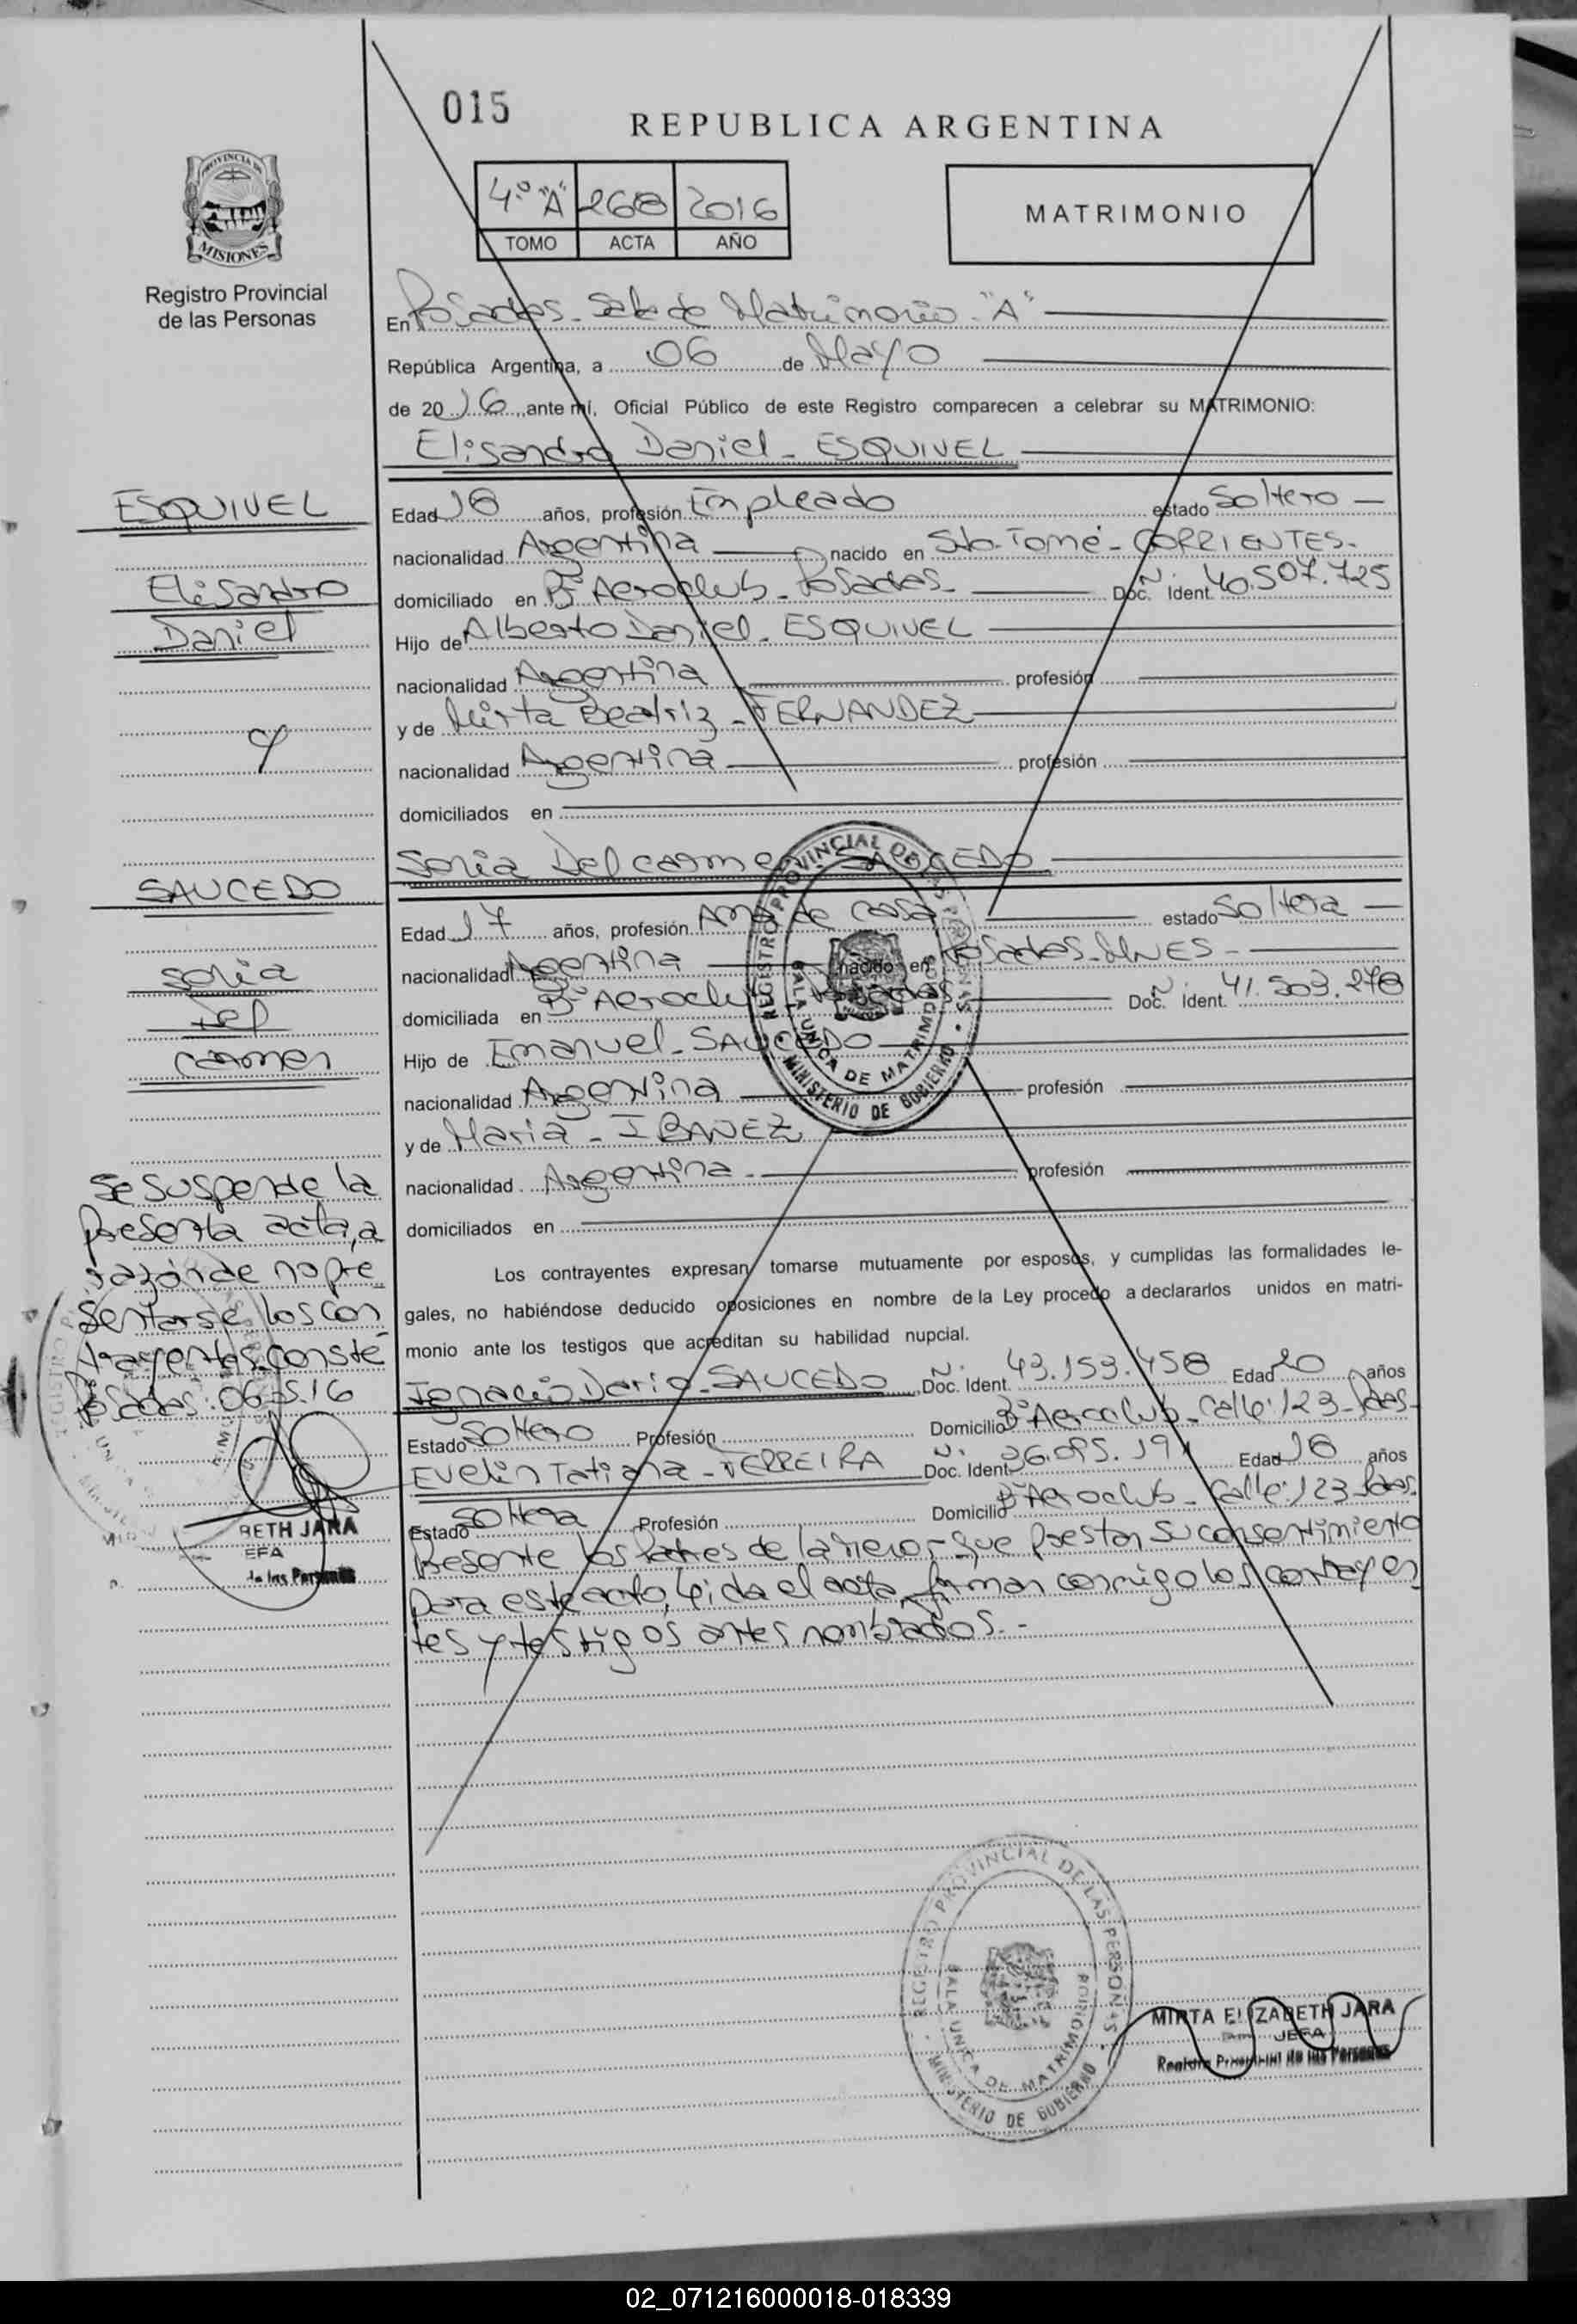 015
REPUBLICA ARGENTINA
4º "A" 268 2016
TOMO ACTA AÑO
MATRIMONIO
PROVINCIA DE
MISIONES
Registro Provincial
de las Personas
En Posadas - Sala de Matrimonio - "A"
República Argentina, a 06 de Mayo
de 2016, ante mí, Oficial Público de este Registro comparecen a celebrar su MATRIMONIO:
Elisandro Daniel - ESQUIVEL
ESQUIVEL
Elisandro
Daniel
y
SAUCEDO
Sonia
Del
Carmen
Edad 18 años, profesión Empleado estado Soltero
nacionalidad Argentina nacido en Sto. Tomé - CORRIENTES.
domiciliado en Bº Aeroclub - Posadas - Doc. Ident. Nº 40.507.725
Hijo de Alberto Daniel - ESQUIVEL
nacionalidad Argentina profesión
y de Mirta Beatriz - FERNANDEZ
nacionalidad Argentina profesión
domiciliados en
Sonia Del Carmen - SAUCEDO
Edad 17 años, profesión Ama de casa estado Soltera
nacionalidad Argentina nacido en Posadas - MNES -
domiciliada en Bº Aeroclub Posadas Doc. Ident. Nº 41.303.278
Hijo de Emanuel - SAUCEDO
nacionalidad Argentina profesión
y de Maria - IBANEZ
nacionalidad Argentina profesión
domiciliados en
REGISTRO PROVINCIAL DE LAS PERSONAS
SALA UNICA DE MATRIMONIOS
MINISTERIO DE GOBIERNO
Se suspende la
presenta acta, a
razón de no pre
sentarse los con
trayentes. conste
Posadas: 06-5-16
BETH JARA
EFA
de las Personas
Los contrayentes expresan tomarse mutuamente por esposos, y cumplidas las formalidades le-
gales, no habiéndose deducido oposiciones en nombre de la Ley procedo a declararlos unidos en matri-
monio ante los testigos que acreditan su habilidad nupcial.
Ignacio Dario - SAUCEDO Doc. Ident. Nº 43.153.458 Edad 20 años
Estado Soltero Profesión Domicilio Bº Aeroclub - Calle: 123 - Pdas -
Evelin Tatiana - FERREIRA Doc. Ident. Nº Edad 18 años
Estado Soltera Profesión Domicilio Bº Aeroclub - Calle: 123 Pdas.
Presente los Padres de la menor que prestan su consentimiento
para este acto, leida el acta, firman conmigo los contrayen
tes y testigos antes nombrados. -
REGISTRO PROVINCIAL DE LAS PERSONAS
SALA UNICA DE MATRIMONIOS
MINISTERIO DE GOBIERNO
MIRTA ELIZABETH JARA
JEFA
Registro Provincial de las Personas
02_071216000018-018339